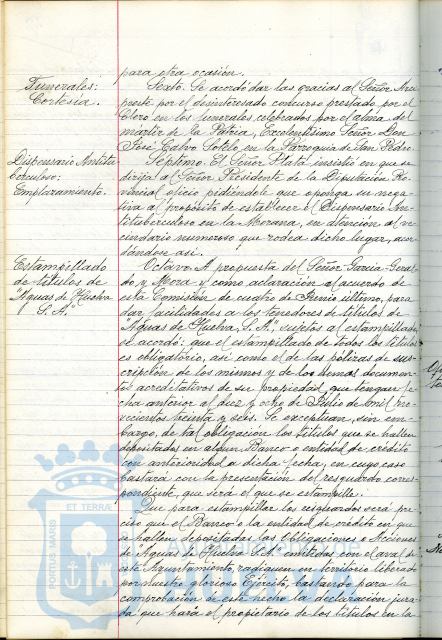 para otra ocasión.
Funerales:
Cortesía.
Sexto. Se acordó dar las gracias al Señor Arci
preste por el desinteresado concurso prestado por el
Clero en los funerales celebrados por el alma del
mártir de la Patria, Excelentísimo Señor Don
José Calvo Sotelo, en la Parroquia de San Pedro.
Dispensario Antitu-
berculoso:
Emplazamiento.
Séptimo. El Señor Mata insistió en que se
dirija al Señor Presidente de la Diputación Pro-
vincial oficio pidiéndole que exponga su nega-
tiva al propósito de establecer el Dispensario An-
tituberculoso en la Morana, en atención al ve-
cindario numeroso que rodea dicho lugar, acor-
dándose así.
Estampillado
de títulos de
"Aguas de Huelva
S.A."
Octavo. A propuesta del Señor García Geral-
do y Mora y como aclaración al acuerdo de
esta Comisión de cuatro de Junio último, para
dar facilidades a los tenedores de títulos de
"Aguas de Huelva, S.A.", sujetos al estampillado,
se acordó: que el estampillado de todos los títulos
es obligatorio, así como el de las pólizas de sus-
cripción de los mismos y de los demás documen-
tos acreditativos de su propiedad, que tengan fe-
cha anterior al diez y ocho de Julio de mil no-
vecientos treinta y seis. Se exceptúan, sin em-
bargo, de tal obligación los títulos que se hallen
depositados en algún Banco o entidad de crédito
con anterioridad a dicha fecha, en cuyo caso
bastará con la presentación del resguardo corres-
pondiente, que será el que se estampille.
Que para estampillar los resguardos será pre-
ciso que el Banco o la entidad de crédito en que
se hallen depositadas las Obligaciones o Acciones
de "Aguas de Huelva S.A." emitidas con el aval de
este Ayuntamiento, radiquen en territorio liberado
por nuestro glorioso Ejército, bastando para la
comprobación de este hecho la declaración jura-
da que hará el propietario de los títulos en la
PORTUS MARIS ET TERRAE